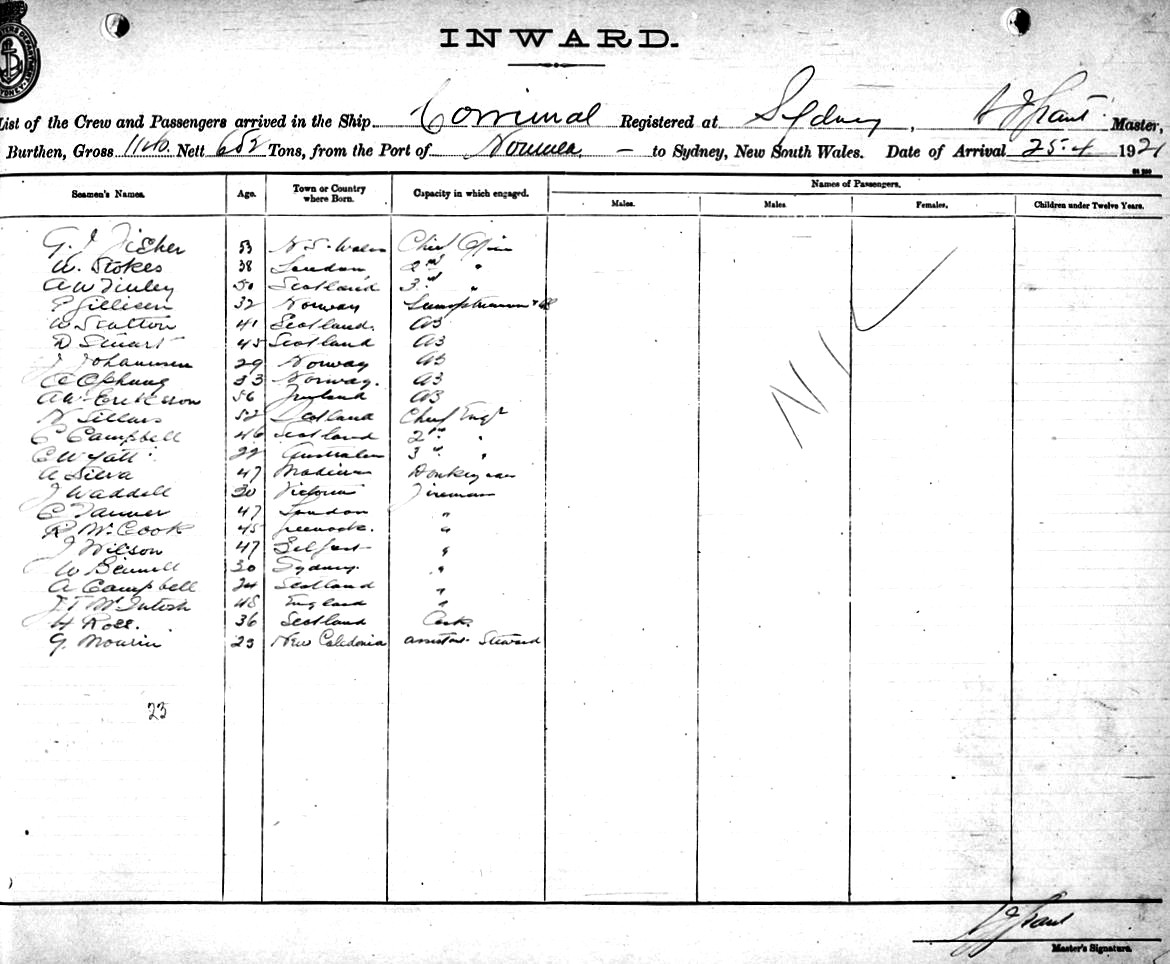 INWARD.
List of the Crew and Passengers arrived in the Ship Corrimal Registered at Sydney, A J Grant Master,
Burthen, Gross 1140 Nett 652 Tons, from the Port of Noumea — to Sydney, New South Wales. Date of Arrival 25.4 1921
Seamen's Names. Age. Town or Country where Born. Capacity in which engaged. Names of Passengers.
Males. Males Females. Children under Twelve Years.
G. J Fisher 53 N. S. Wales Chief
W. Stokes 38 London 2nd "
A W Finley 50 Scotland 3rd "
32 Norway
41 Scotland. AB
D Stuart 45 Scotland AB
J Johannsen 29 Norway AB
33 Norway. AB
A W Erickson 56 AB
N Sillars 52 Scotland Chief Engr
C Campbell 46 Scotland 2nd "
C Wyatt 22 Australia 3rd "
A Silva 47 Madeira Donkeyman
J Waddell 30 Victoria Fireman
C Tanner 47 London "
R McCook 45 Greenock. "
J Wilson 47 Belfast "
W Bennell 30 Sydney. "
A Campbell 24 Scotland "
J.T McIntosh 48 England "
H Ross. 36 Scotland Cook.
G. Mourin 23 New Caledonia assistant Steward
Nil
23
A J Grant
Master's Signature.